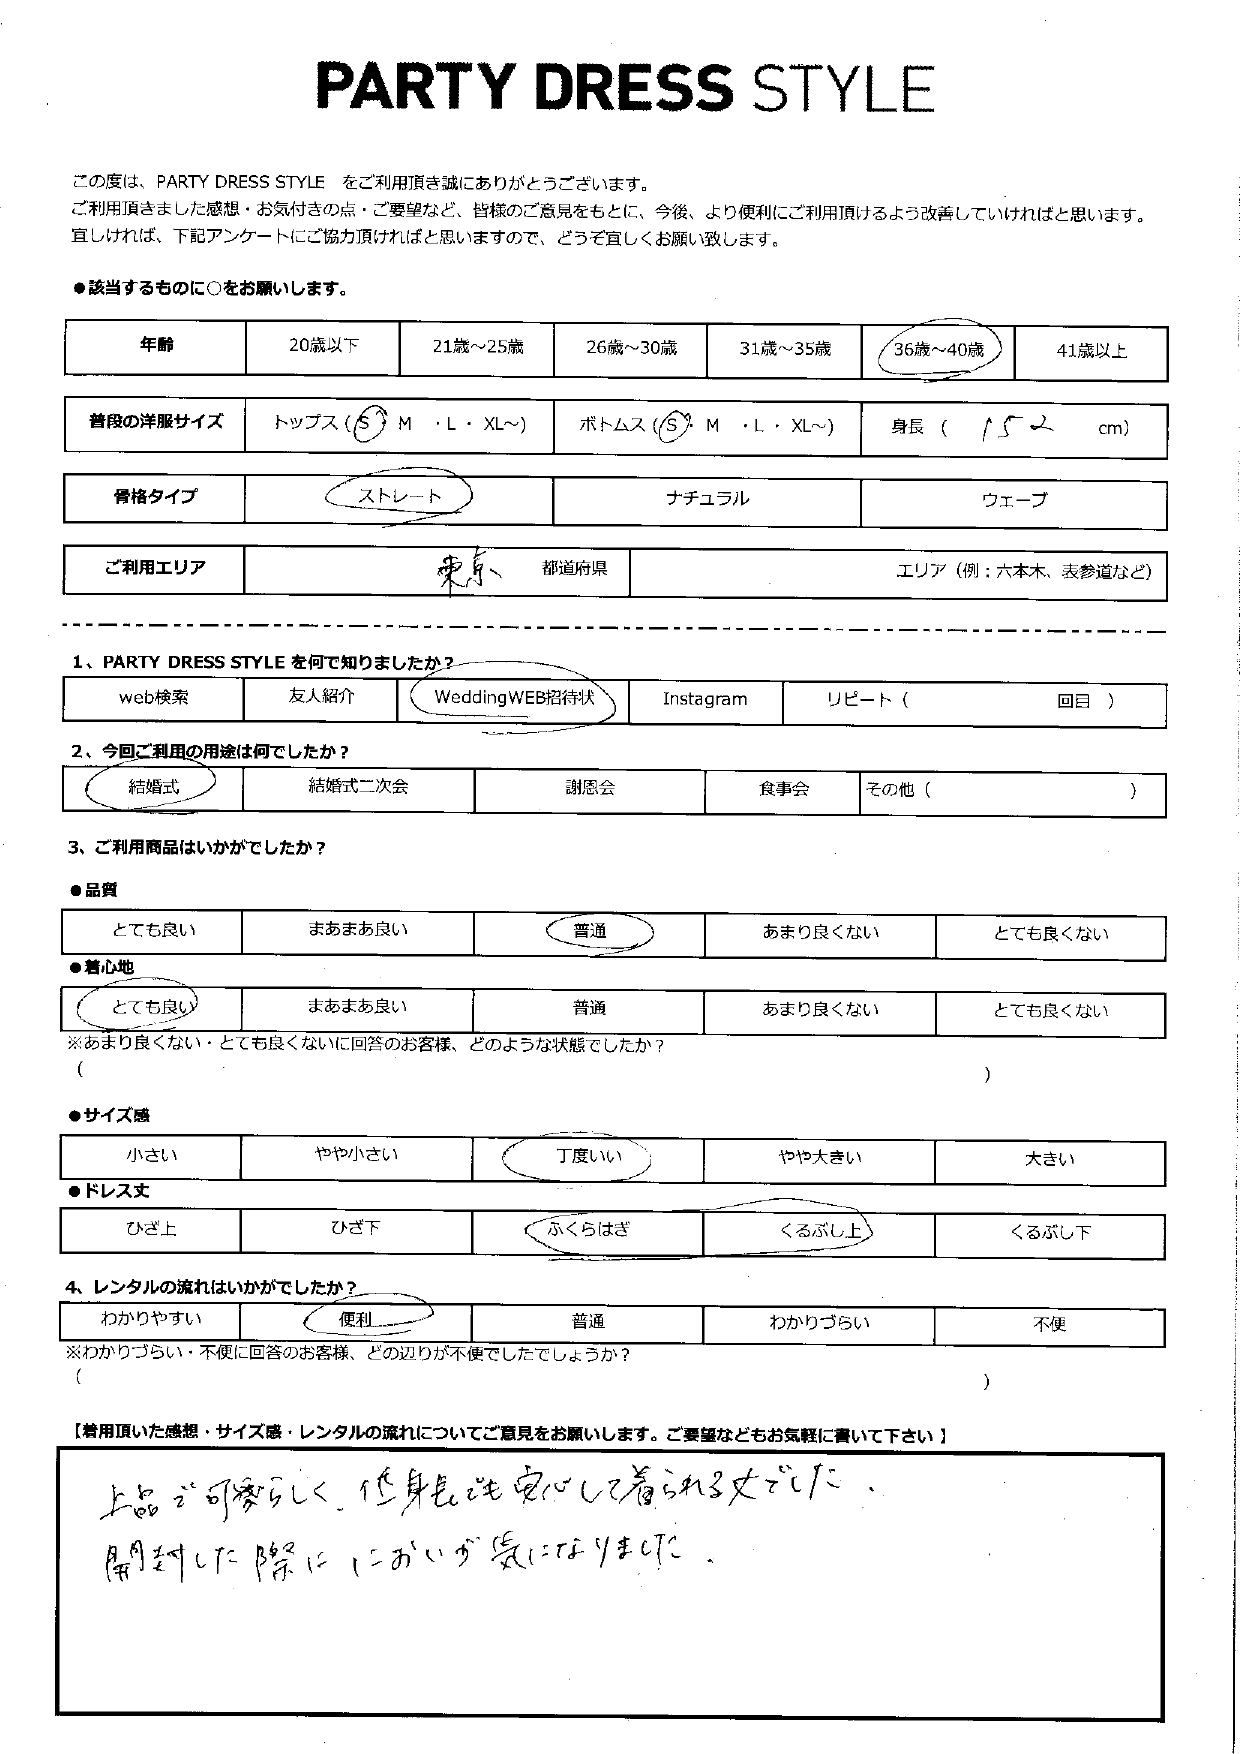 PARTY DRESS STYLE
この度は、PARTY DRESS STYLE をご利用頂き誠にありがとうございます。
ご利用頂きました感想・お気付きの点・ご要望など、皆様のご意見をもとに、今後、より便利にご利用頂けるよう改善していければと思います。
宜しければ、下記アンケートにご協力頂ければと思いますので、どうぞ宜しくお願い致します。
●該当するものに○をお願いします。
年齢 20歳以下 21歳～25歳 26歳～30歳 31歳～35歳 36歳～40歳 41歳以上
普段の洋服サイズ トップス (S・ M ・L・ XL～) ボトムス (S・ M ・L・ XL～) 身長 ( 152 cm)
骨格タイプ ストレート ナチュラル ウェーブ
ご利用エリア 東京 都道府県 エリア (例：六本木、表参道など)
1、PARTY DRESS STYLE を何で知りましたか？
web検索 友人紹介 WeddingWEB招待状 Instagram リピート ( 回目 )
2、今回ご利用の用途は何でしたか？
結婚式 結婚式二次会 謝恩会 食事会 その他 ( )
3、ご利用商品はいかがでしたか？
●品質
とても良い まあまあ良い 普通 あまり良くない とても良くない
●着心地
とても良い まあまあ良い 普通 あまり良くない とても良くない
※あまり良くない・とても良くないに回答のお客様、どのような状態でしたか？
( )
●サイズ感
小さい やや小さい 丁度いい やや大きい 大きい
●ドレス丈
ひざ上 ひざ下 ふくらはぎ くるぶし上 くるぶし下
4、レンタルの流れはいかがでしたか？
わかりやすい 便利 普通 わかりづらい 不便
※わかりづらい・不便に回答のお客様、どの辺りが不便でしたでしょうか？
( )
【着用頂いた感想・サイズ感・レンタルの流れについてご意見をお願いします。ご要望などもお気軽に書いて下さい 】
上品で可愛らしく、低身長でも安心して着られる丈でした。
開封した際ににおいが気になりました。